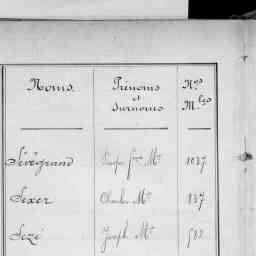 Noms. Prénoms et surnoms Nos Mles
Sévégrand 1037
Sexer Charles Mie 837
Sezé Joseph Mie 582